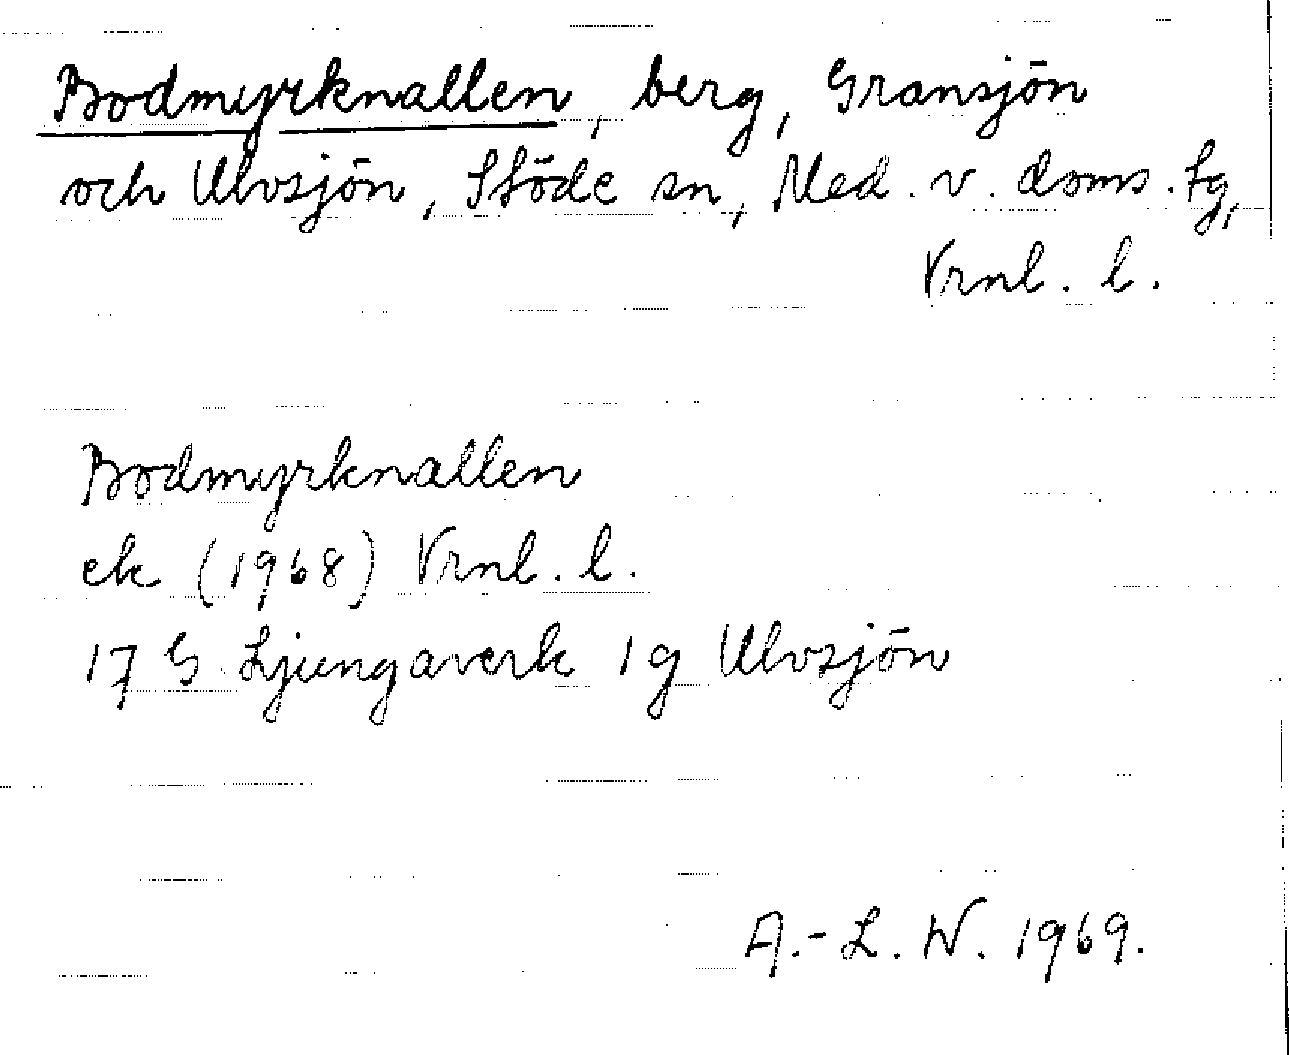 Bodmyrknallen, berg, Gransjön
och Ulvsjön, Stöde sn, Med. v. doms. tg,
Vrnl. l.
Bodmyrknallen
ek (1968) Vrnl. l.
17 G Ljungaverk 1 g Ulvsjön
A.-L. W. 1969.